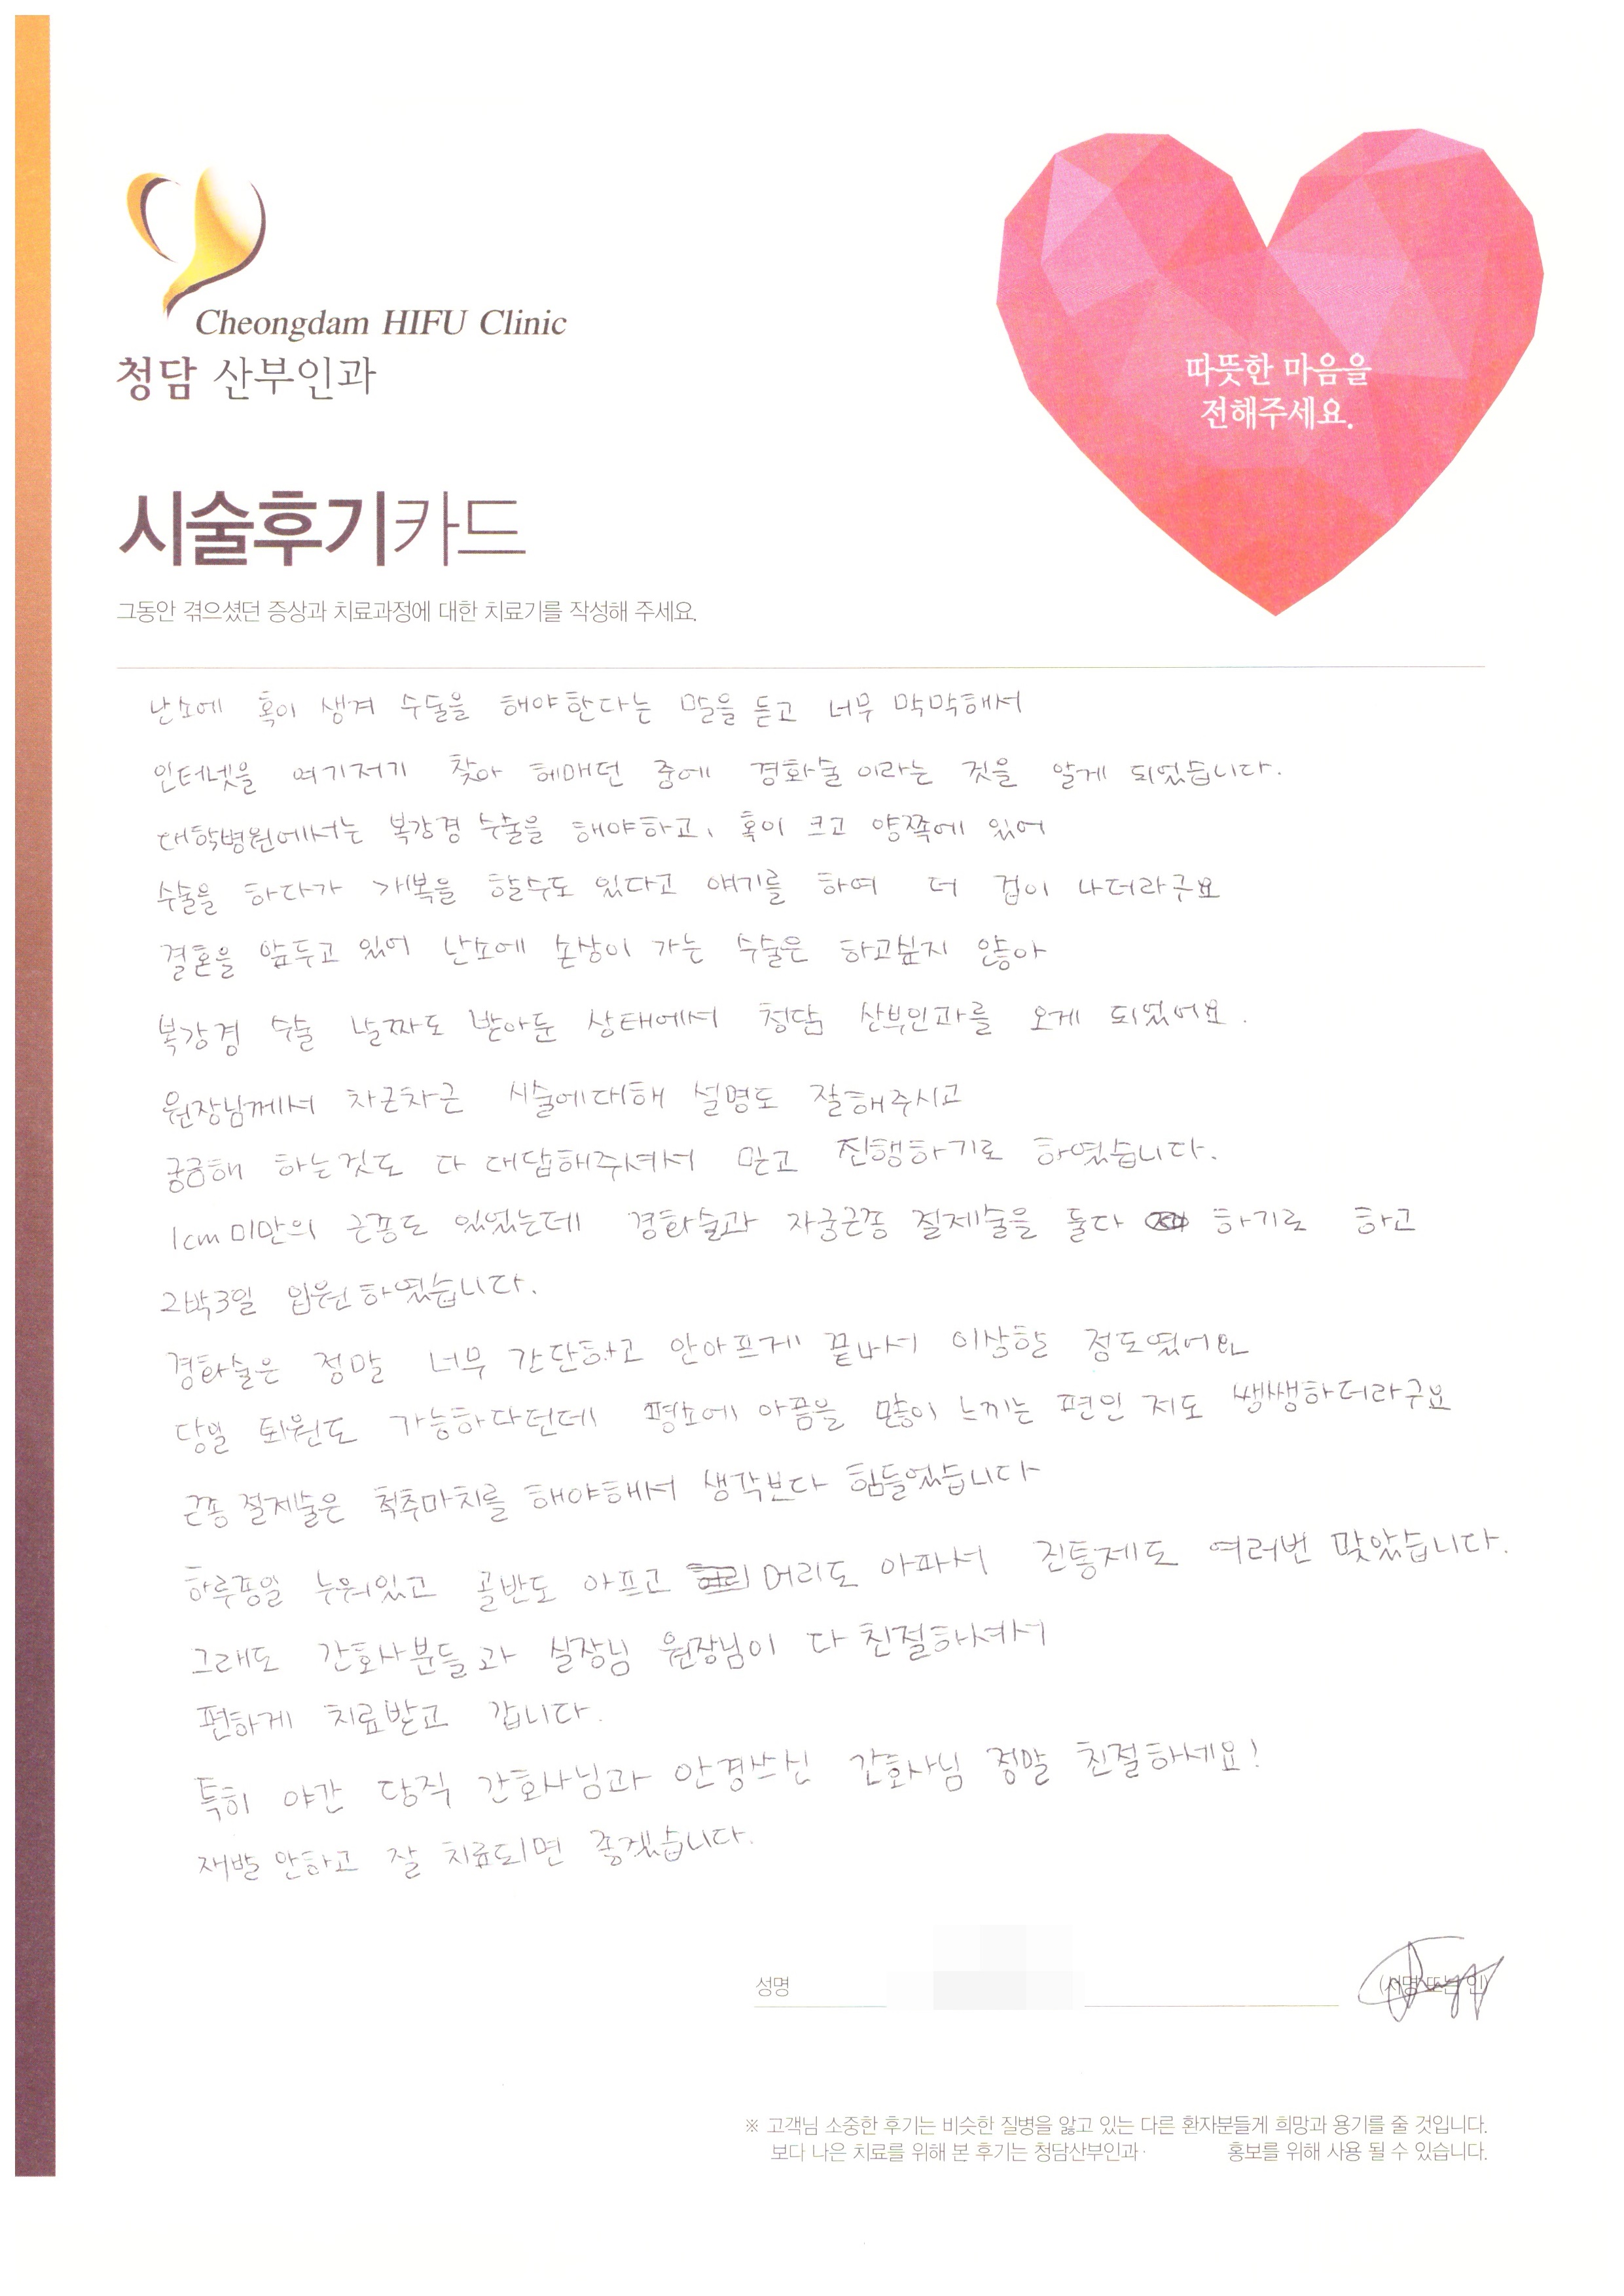 Cheongdam HIFU Clinic
청담 산부인과
따뜻한 마음을
전해주세요.
시술후기카드
그동안 겪으셨던 증상과 치료과정에 대한 치료기를 작성해 주세요.
난소에 혹이 생겨 수술을 해야한다는 말을 듣고 너무 막막해서
인터넷을 여기저기 찾아 헤매던 중에 경화술이라는 것을 알게 되었습니다.
대학병원에서는 복강경 수술을 해야하고, 혹이 크고 양쪽에 있어
수술을 하다가 개복을 할수도 있다고 얘기를 하여 더 겁이 나더라구요
결혼을 앞두고 있어 난소에 손상이 가는 수술은 하고싶지 않아
복강경 수술 날짜도 받아둔 상태에서 청담 산부인과를 오게 되었어요.
원장님께서 차근차근 시술에대해 설명도 잘해주시고
궁금해 하는것도 다 대답해주셔서 믿고 진행하기로 하였습니다.
1cm미만의 근종도 있었는데 경화술과 자궁근종 절제술을 둘다 하기로 하고
2박3일 입원하였습니다.
경화술은 정말 너무 간단하고 안아프게 끝나서 이상할 정도였어요
당일 퇴원도 가능하다던데 평소에 아픔을 많이 느끼는 편인 저도 쌩쌩하더라구요
근종 절제술은 척추마취를 해야해서 생각보다 힘들었습니다
하루종일 누워있고 골반도 아프고 머리도 아파서 진통제도 여러번 맞았습니다.
그래도 간호사분들과 실장님 원장님이 다 친절하셔서
편하게 치료받고 갑니다.
특히 야간 당직 간호사님과 안경쓰신 간호사님 정말 친절하세요!
재발 안하고 잘 치료되면 좋겠습니다.
성명 (서명 또는 인)
※ 고객님 소중한 후기는 비슷한 질병을 앓고 있는 다른 환자분들게 희망과 용기를 줄 것입니다.
보다 나은 치료를 위해 본 후기는 청담산부인과· 홍보를 위해 사용 될 수 있습니다.